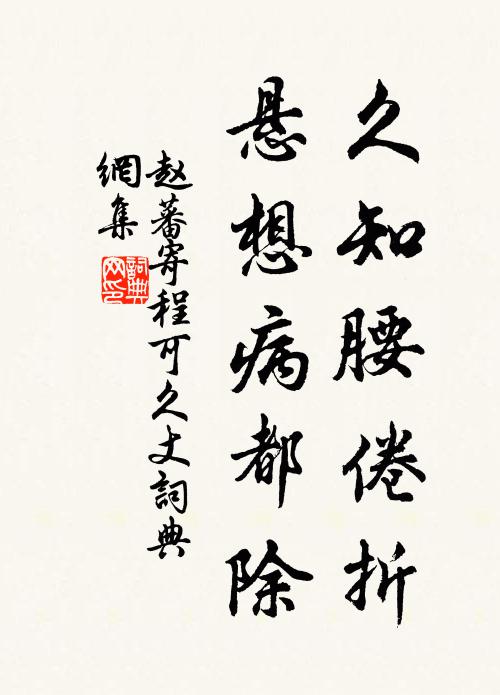 久知腰倦折
悬想病都除
赵蕃寄程可久丈詞典
網集
詞典
网印